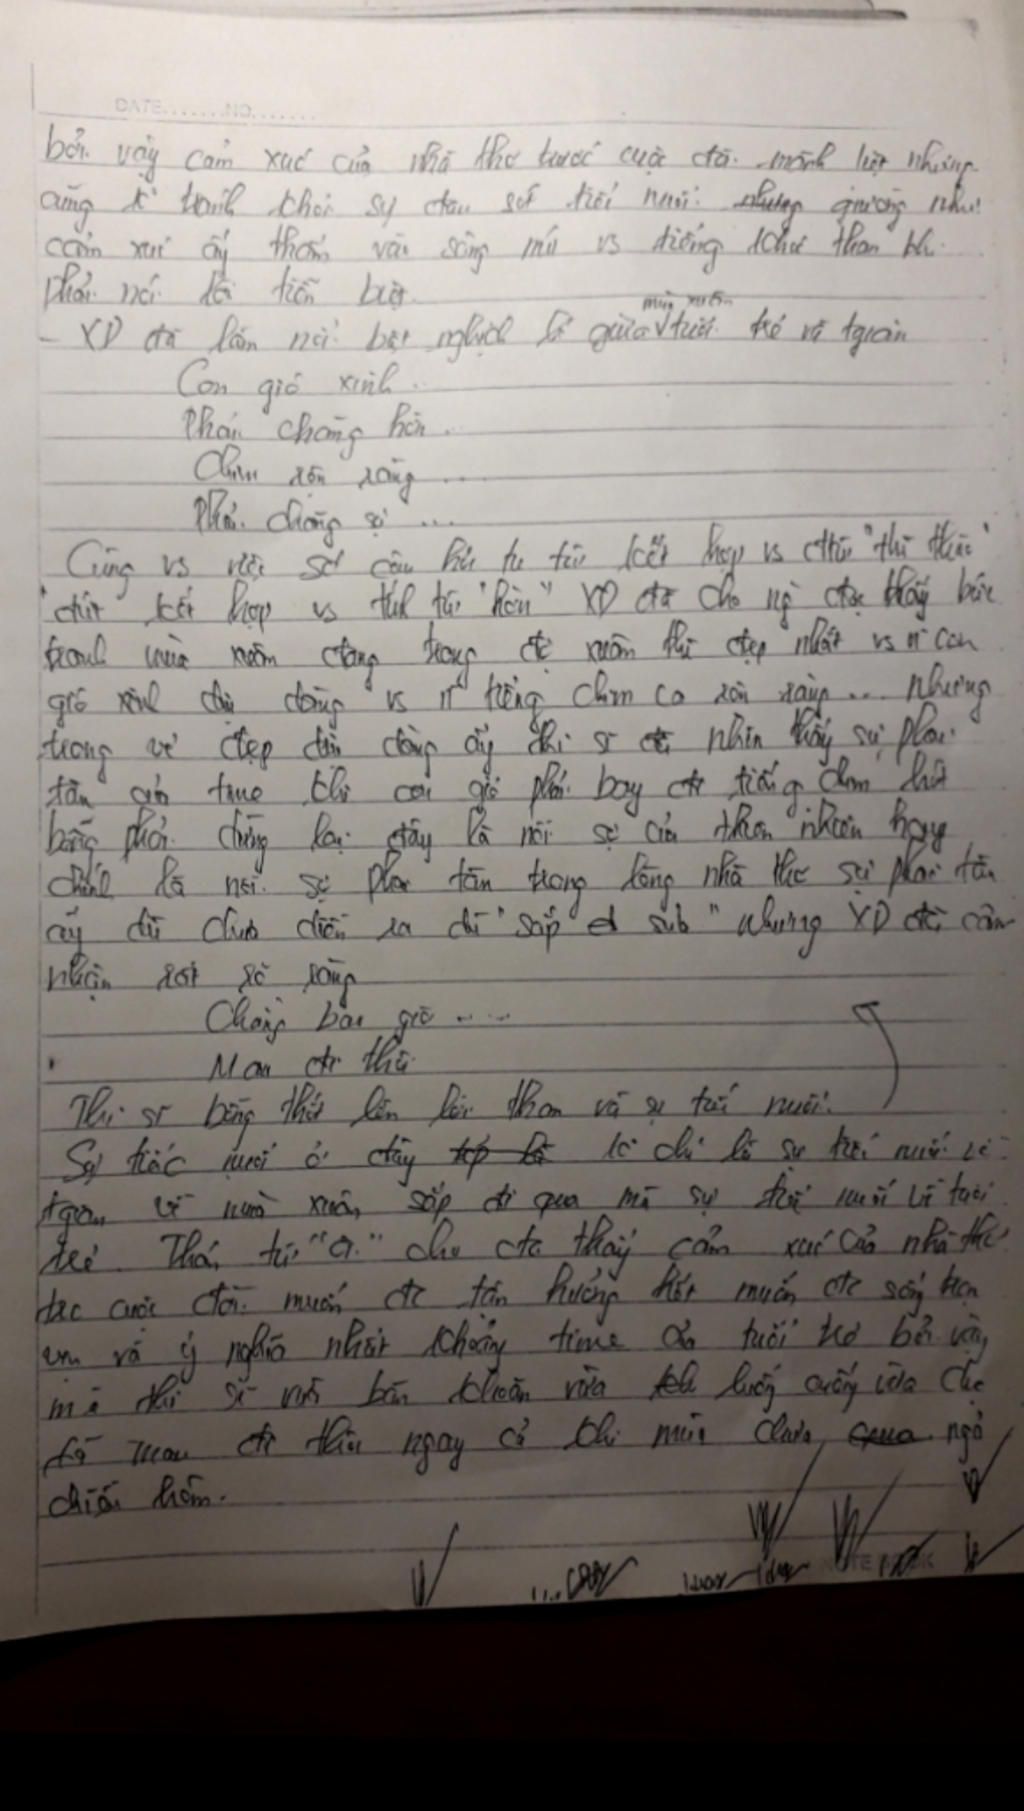 DATE.......NO.......
bởi vậy cảm xúc của nhà thơ trước cuộc đời mãnh liệt nhưng
cũng k tránh khỏi sự đau xót tiếc nuối nhưng giường như
cảm xúc ấy thấm vào sông núi vs tiếng than
phải nói lời tiễn biệt
- XD đã lần nổi bật nghịch lí giữa mùa xuân tuổi trẻ và tgian
Con gió xinh ..
Phải chăng hờn ..
Chim rộn ràng ...
Phải chăng sợ ...
Cùng vs việc sd câu hỏi tu từ kết hợp vs "thì thào"
"đứt" kết hợp vs tính từ "hờn" XD đã cho ng đọc thấy bức
tranh mùa xuân đang trong độ xuân thì đẹp nhất vs n~ cơn
gió xinh dịu dàng vs n~ tiếng chim ca rộn ràng ... nhưng
trong vẻ đẹp ấy thi sĩ đã nhìn thấy sự phai
tàn của time khi cơn gió phải bay đi tiếng chim hót
bỗng phải dừng lại đây là nỗi sợ của thiên nhiên hay
chính là nỗi sợ phai tàn trong lòng nhà thơ sự phai tàn
ấy dù chưa diễn ra chỉ "sắp" nhưng XD đã cảm
nhận rất rõ ràng
Chẳng bao giờ ....
Mau đi thôi
Thi sĩ bỗng thốt lên lời than và sự tiếc nuối.
Sự tiếc nuối ở đây k chỉ là sự tiếc nuối về
tgian về mùa xuân sắp đi qua mà sự tiếc nuối về tuổi
trẻ. Thán từ "Ôi" cho ta thấy cảm xúc của nhà thơ
trc cuộc đời muốn đc tận hưởng hết muốn đc sống trọn
vẹn và ý nghĩa nhất khoảng time của tuổi trẻ bởi vậy
mà thi sĩ vừa băn khoăn vừa luống cuống vừa
mau đi thôi ngay cả khi mùa chưa ngả
chiều hôm.
NOTE BOOK